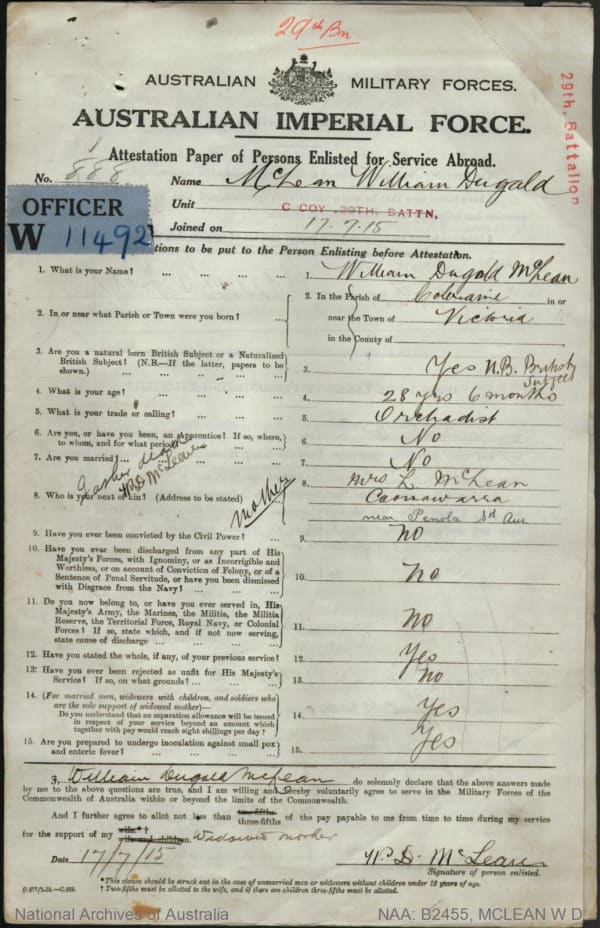 29th Bn
AUSTRALIAN MILITARY FORCES.
AUSTRALIAN IMPERIAL FORCE.
29th, Battalion
Attestation Paper of Persons Enlisted for Service Abroad.
No. 888 Name McLean William Dugald
OFFICER
W 11492
Unit C COY .29TH. BATTN,
Joined on 17.7.15
tions to be put to the Person Enlisting before Attestation.
1. What is your Name? ... ... ... ... 1. William Dugald McLean
2. In or near what Parish or Town were you born? ... 2. In the Parish of Coleraine in or
near the Town of Victoria
in the County of
3. Are you a natural born British Subject or a Naturalized
British Subject? (N.B.—If the latter, papers to be
shown.) ... ... ... ... 3. Yes N.B. British
Subject
4. What is your age? ... ... ... ... 4. 28 yrs 6 months
5. What is your trade or calling? ... ... ... 5. Orchadist
6. Are you, or have you been, an Apprentice? If so, where,
to whom, and for what period? 6. No
7. Are you married? ... 7. No
Father dead
W.D. McLean
8. Who is your next of kin? (Address to be stated) ... mother 8. Mrs L. McLean
Coonawarra
near Penola Sd Aus
9. Have you ever been convicted by the Civil Power? ... 9. No
10. Have you ever been discharged from any part of His
Majesty's Forces, with Ignominy, or as Incorrigible and
Worthless, or on account of Conviction of Felony, or of a
Sentence of Penal Servitude, or have you been dismissed
with Disgrace from the Navy? ... ... ... 10. No
11. Do you now belong to, or have you ever served in, His
Majesty's Army, the Marines, the Militia, the Militia
Reserve, the Territorial Force, Royal Navy, or Colonial
Forces? If so, state which, and if not now serving,
state cause of discharge ... ... ... 11. No
12. Have you stated the whole, if any, of your previous service? 12. Yes
13. Have you ever been rejected as unfit for His Majesty's
Service? If so, on what grounds? ... ... ... 13. No
14. (For married men, widowers with children, and soldiers who
are the sole support of widowed mother)—
Do you understand that no separation allowance will be issued
in respect of your service beyond an amount which
together with pay would reach eight shillings per day? 14. Yes
15. Are you prepared to undergo inoculation against small pox
and enteric fever? ... ... ... ... 15. Yes
3, William Dugald McLean do solemnly declare that the above answers made
by me to the above questions are true, and I am willing and hereby voluntarily agree to serve in the Military Forces of the
Commonwealth of Australia within or beyond the limits of the Commonwealth.
And I further agree to allot not less than two-fifths
three-fifths of the pay payable to me from time to time during my service
for the support of my wife.* †
wife and children Widowed mother
Date 17/7/15 W. D. McLean
Signature of person enlisted.
*This clause should be struck out in the case of unmarried men or widowers without children under 18 years of age.
† Two-fifths must be allotted to the wife, and if there are children three-fifths must be allotted.
National Archives of Australia NAA: B2455, MCLEAN W D